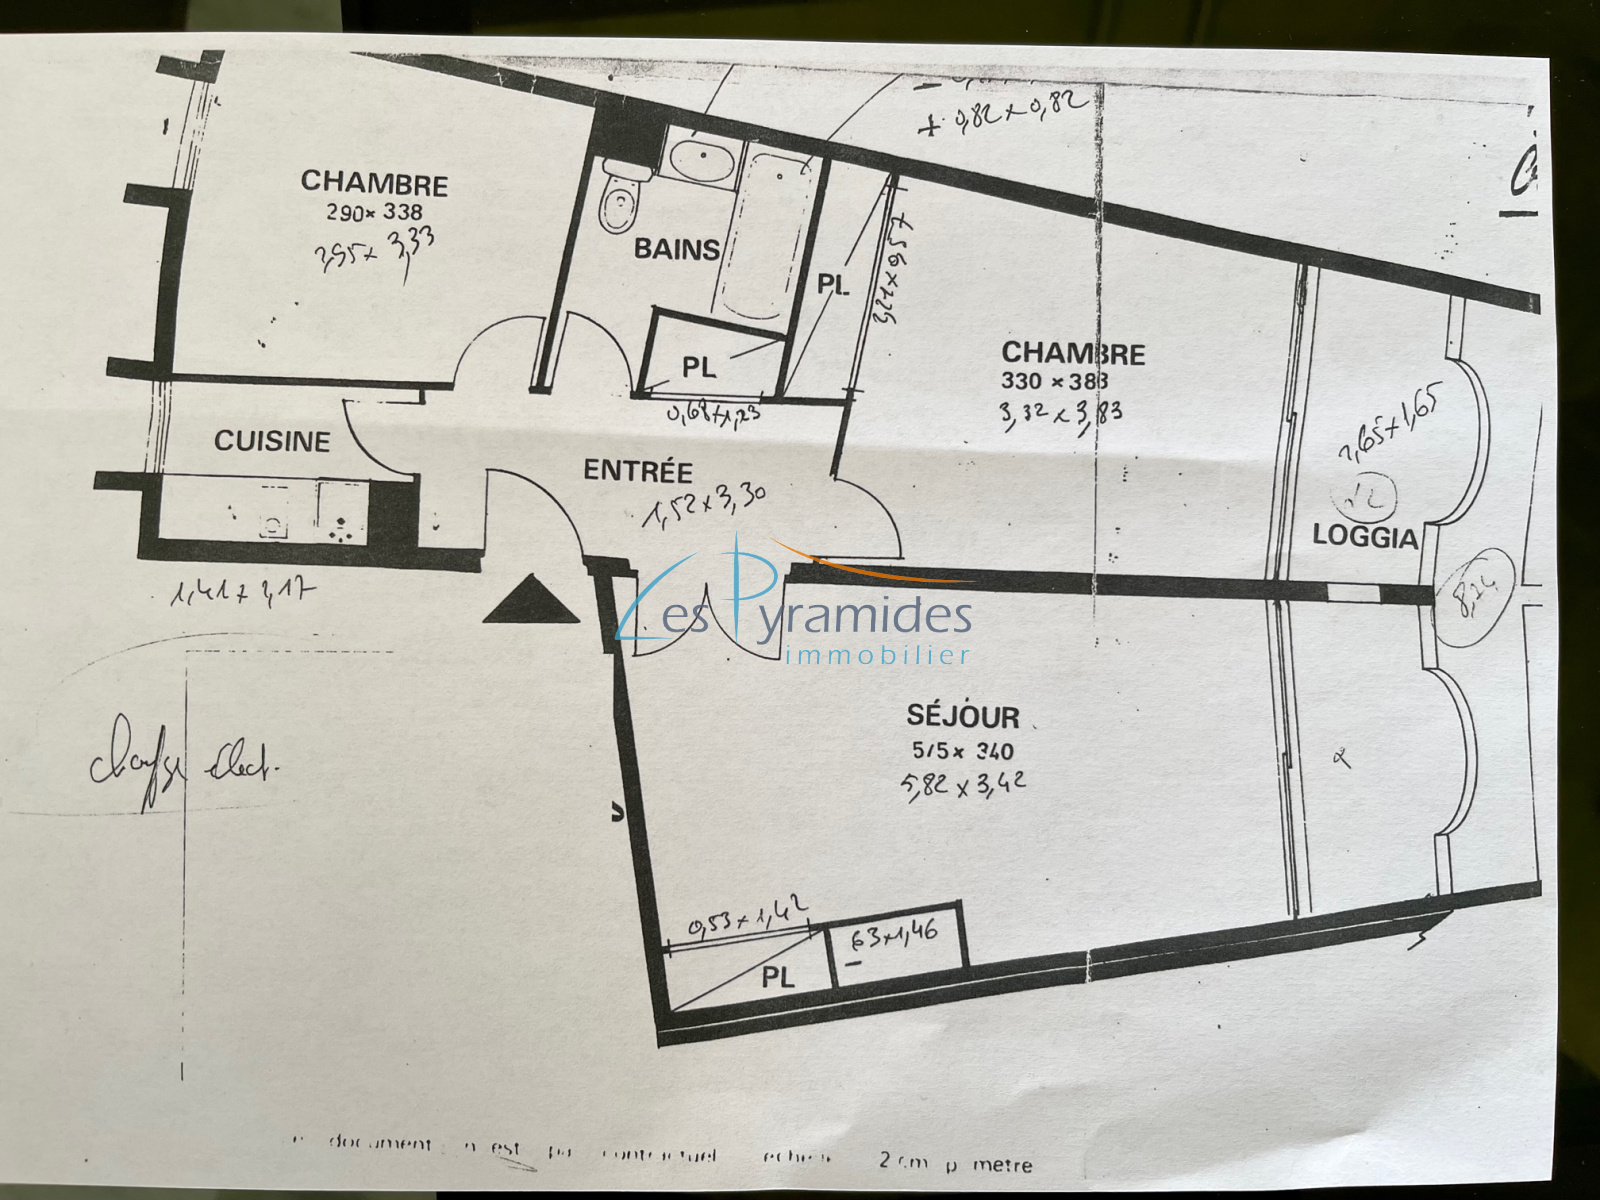 + 0,82 x 0,82
CHAMBRE
290 x 338
2,95 x 3,33
BAINS
PL
3,21 x 0,57
PL
0,68 x 1,23
CHAMBRE
330 x 383
3,32 x 3,83
CUISINE
ENTRÉE
1,52 x 3,30
2,65 x 1,65
x 2
LOGGIA
8,24
1,41 x 2,17
Les Pyramides
immobilier
chauffge élect.
SÉJOUR
575 x 340
5,82 x 3,42
0,53 x 1,42
63 x 1,46
PL
document n'est pas contractuel echelle 2 cm p metre